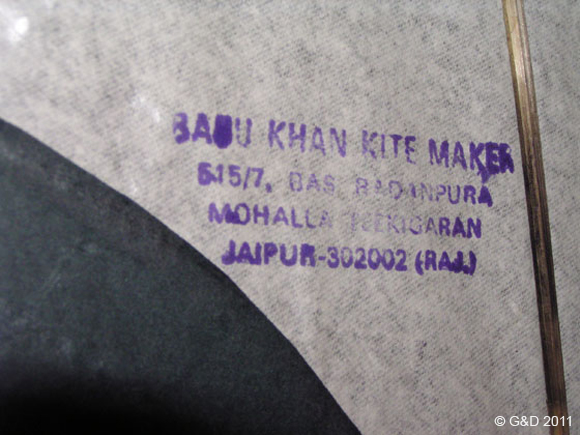 BABU KHAN KITE MAKER
515/7, BAS BADANPURA
MOHALLA
JAIPUR-302002 (RAJ.)
© G&D 2011